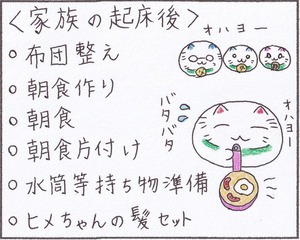 ＜家族の起床後＞
オハヨー
○布団整え
○朝食作り
○朝食
○朝食片付け
○水筒等持ち物準備
○ヒメちゃんの髪セット
バタバタ
オハヨー